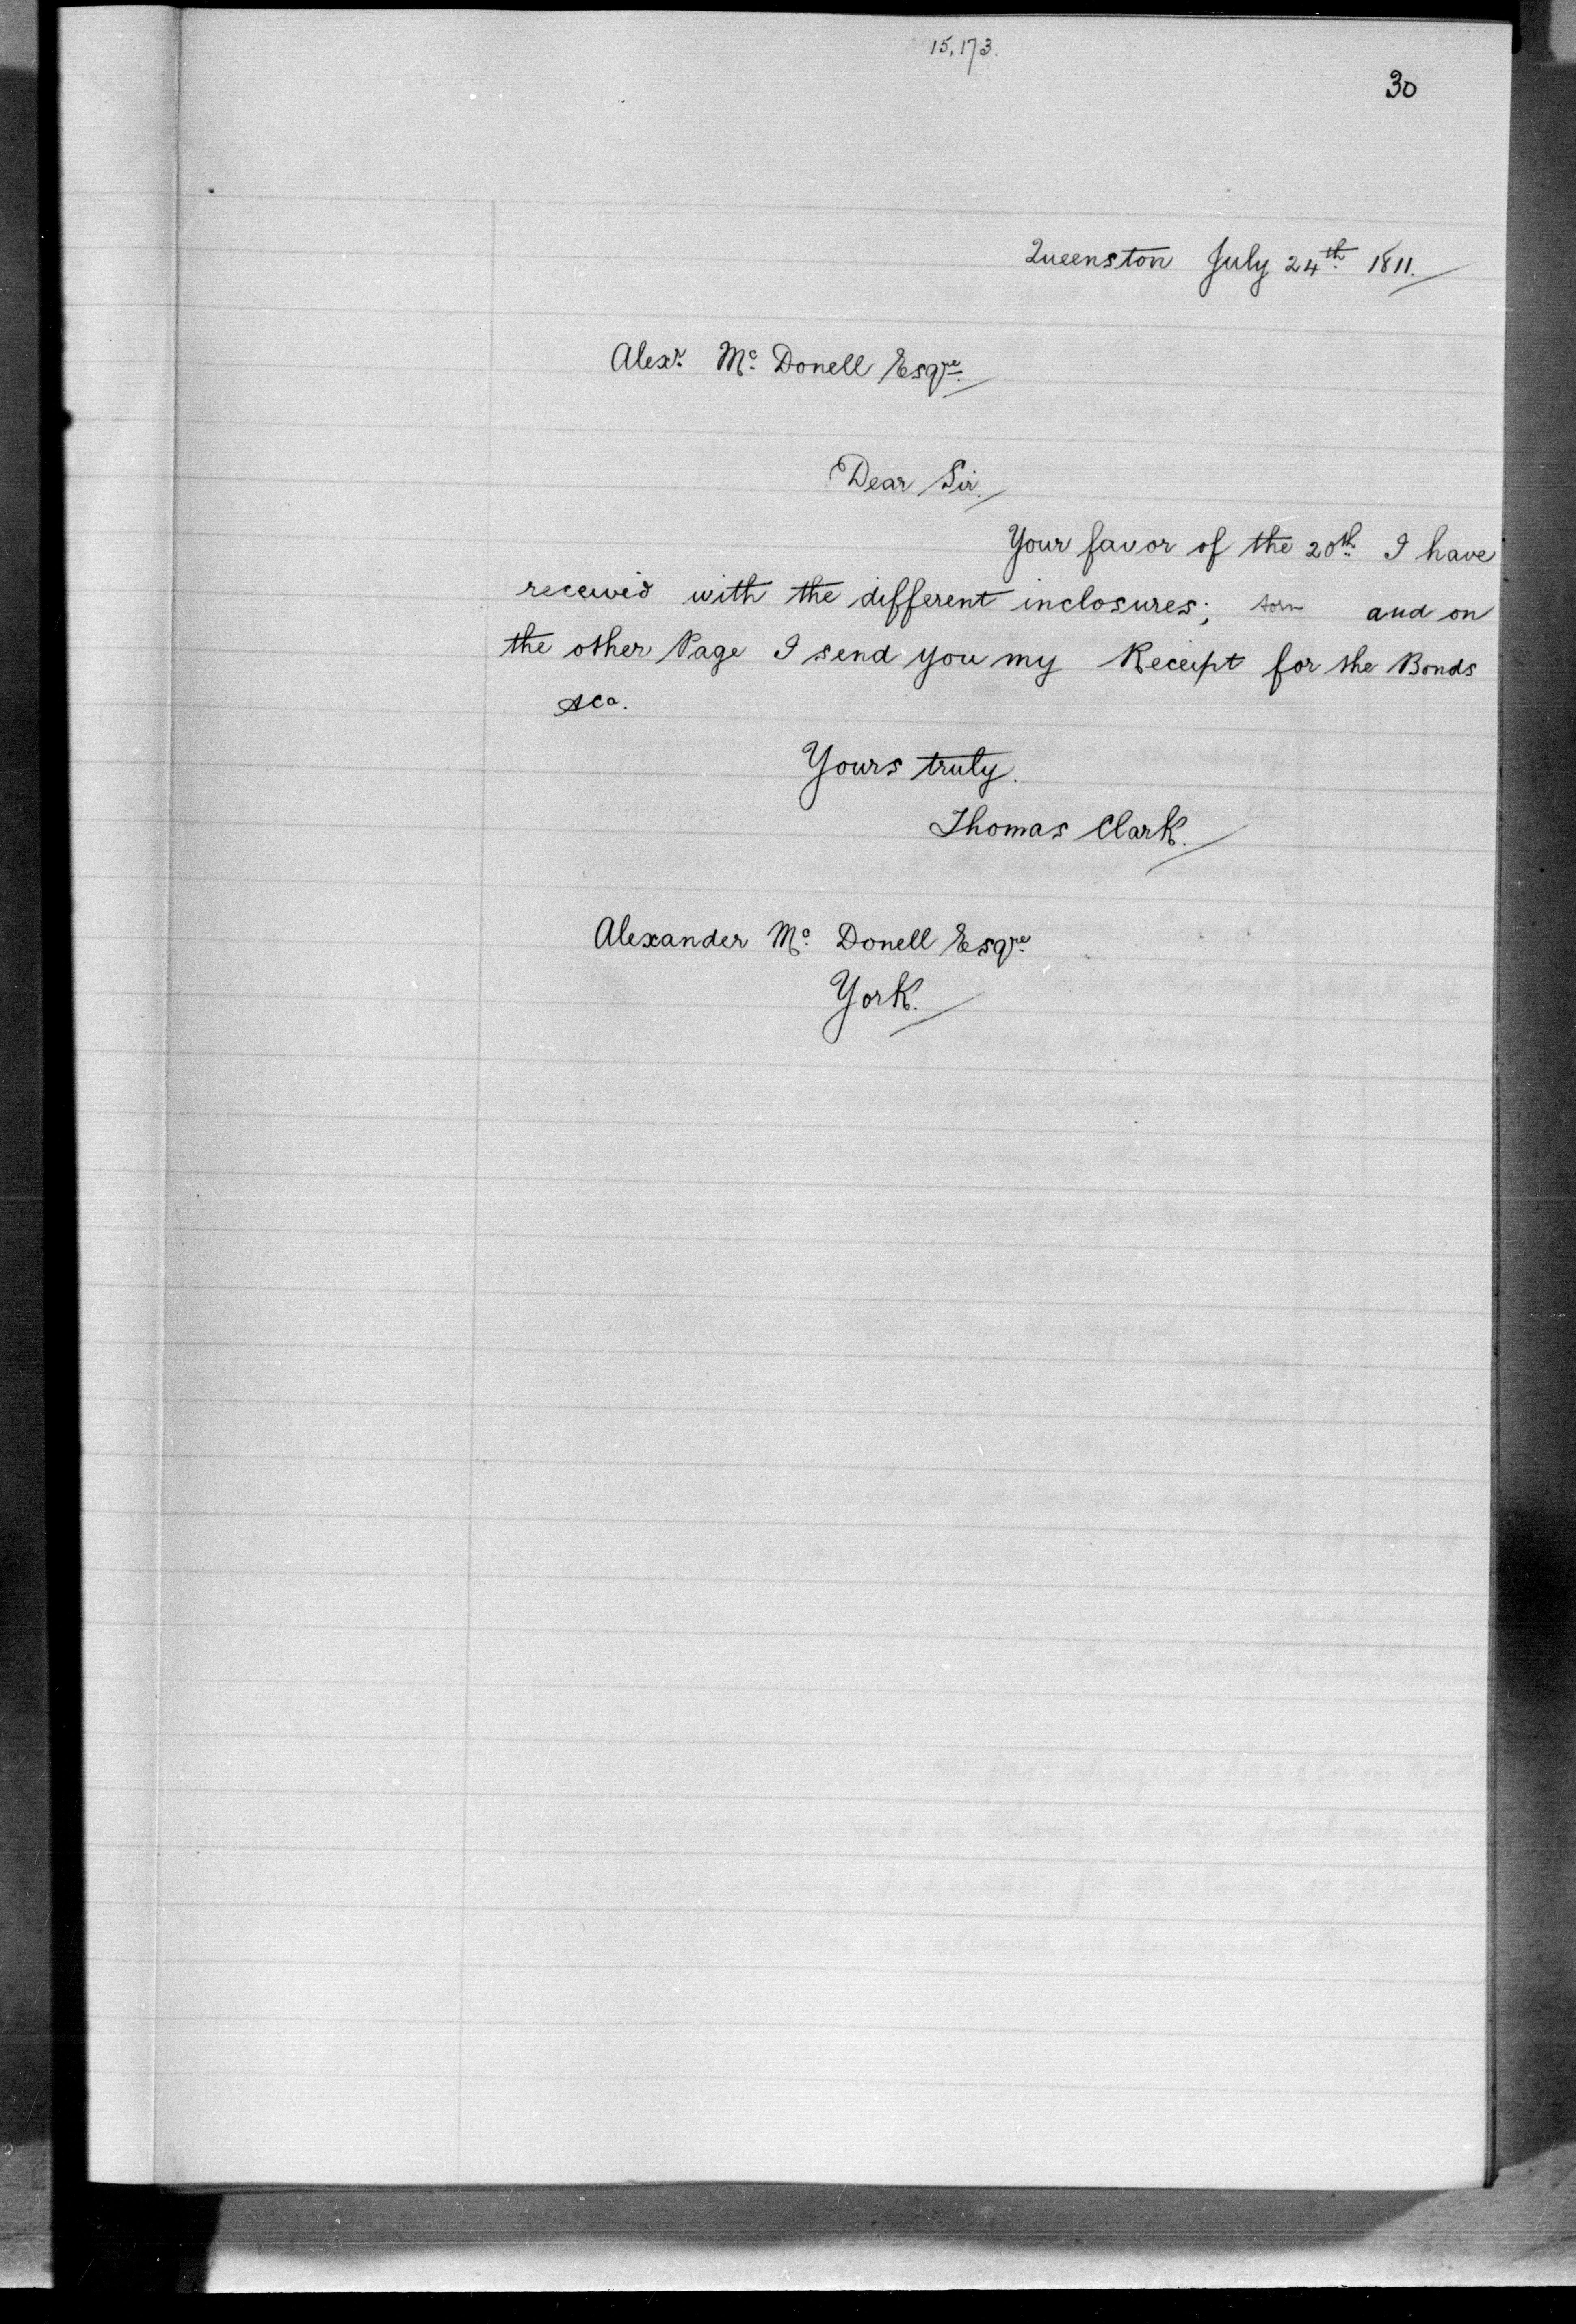 15,173.
30
Queenston July 24th 1811.
Alexr. Mc. Donell Esqre.
Dear Sir.
Your favor of the 20th. I have
received with the different inclosures; torn and on
the other Page I send you my Receipt for the Bonds
&ca.
Yours truly.
Thomas Clark.
Alexander Mc. Donell Esqre.
York.